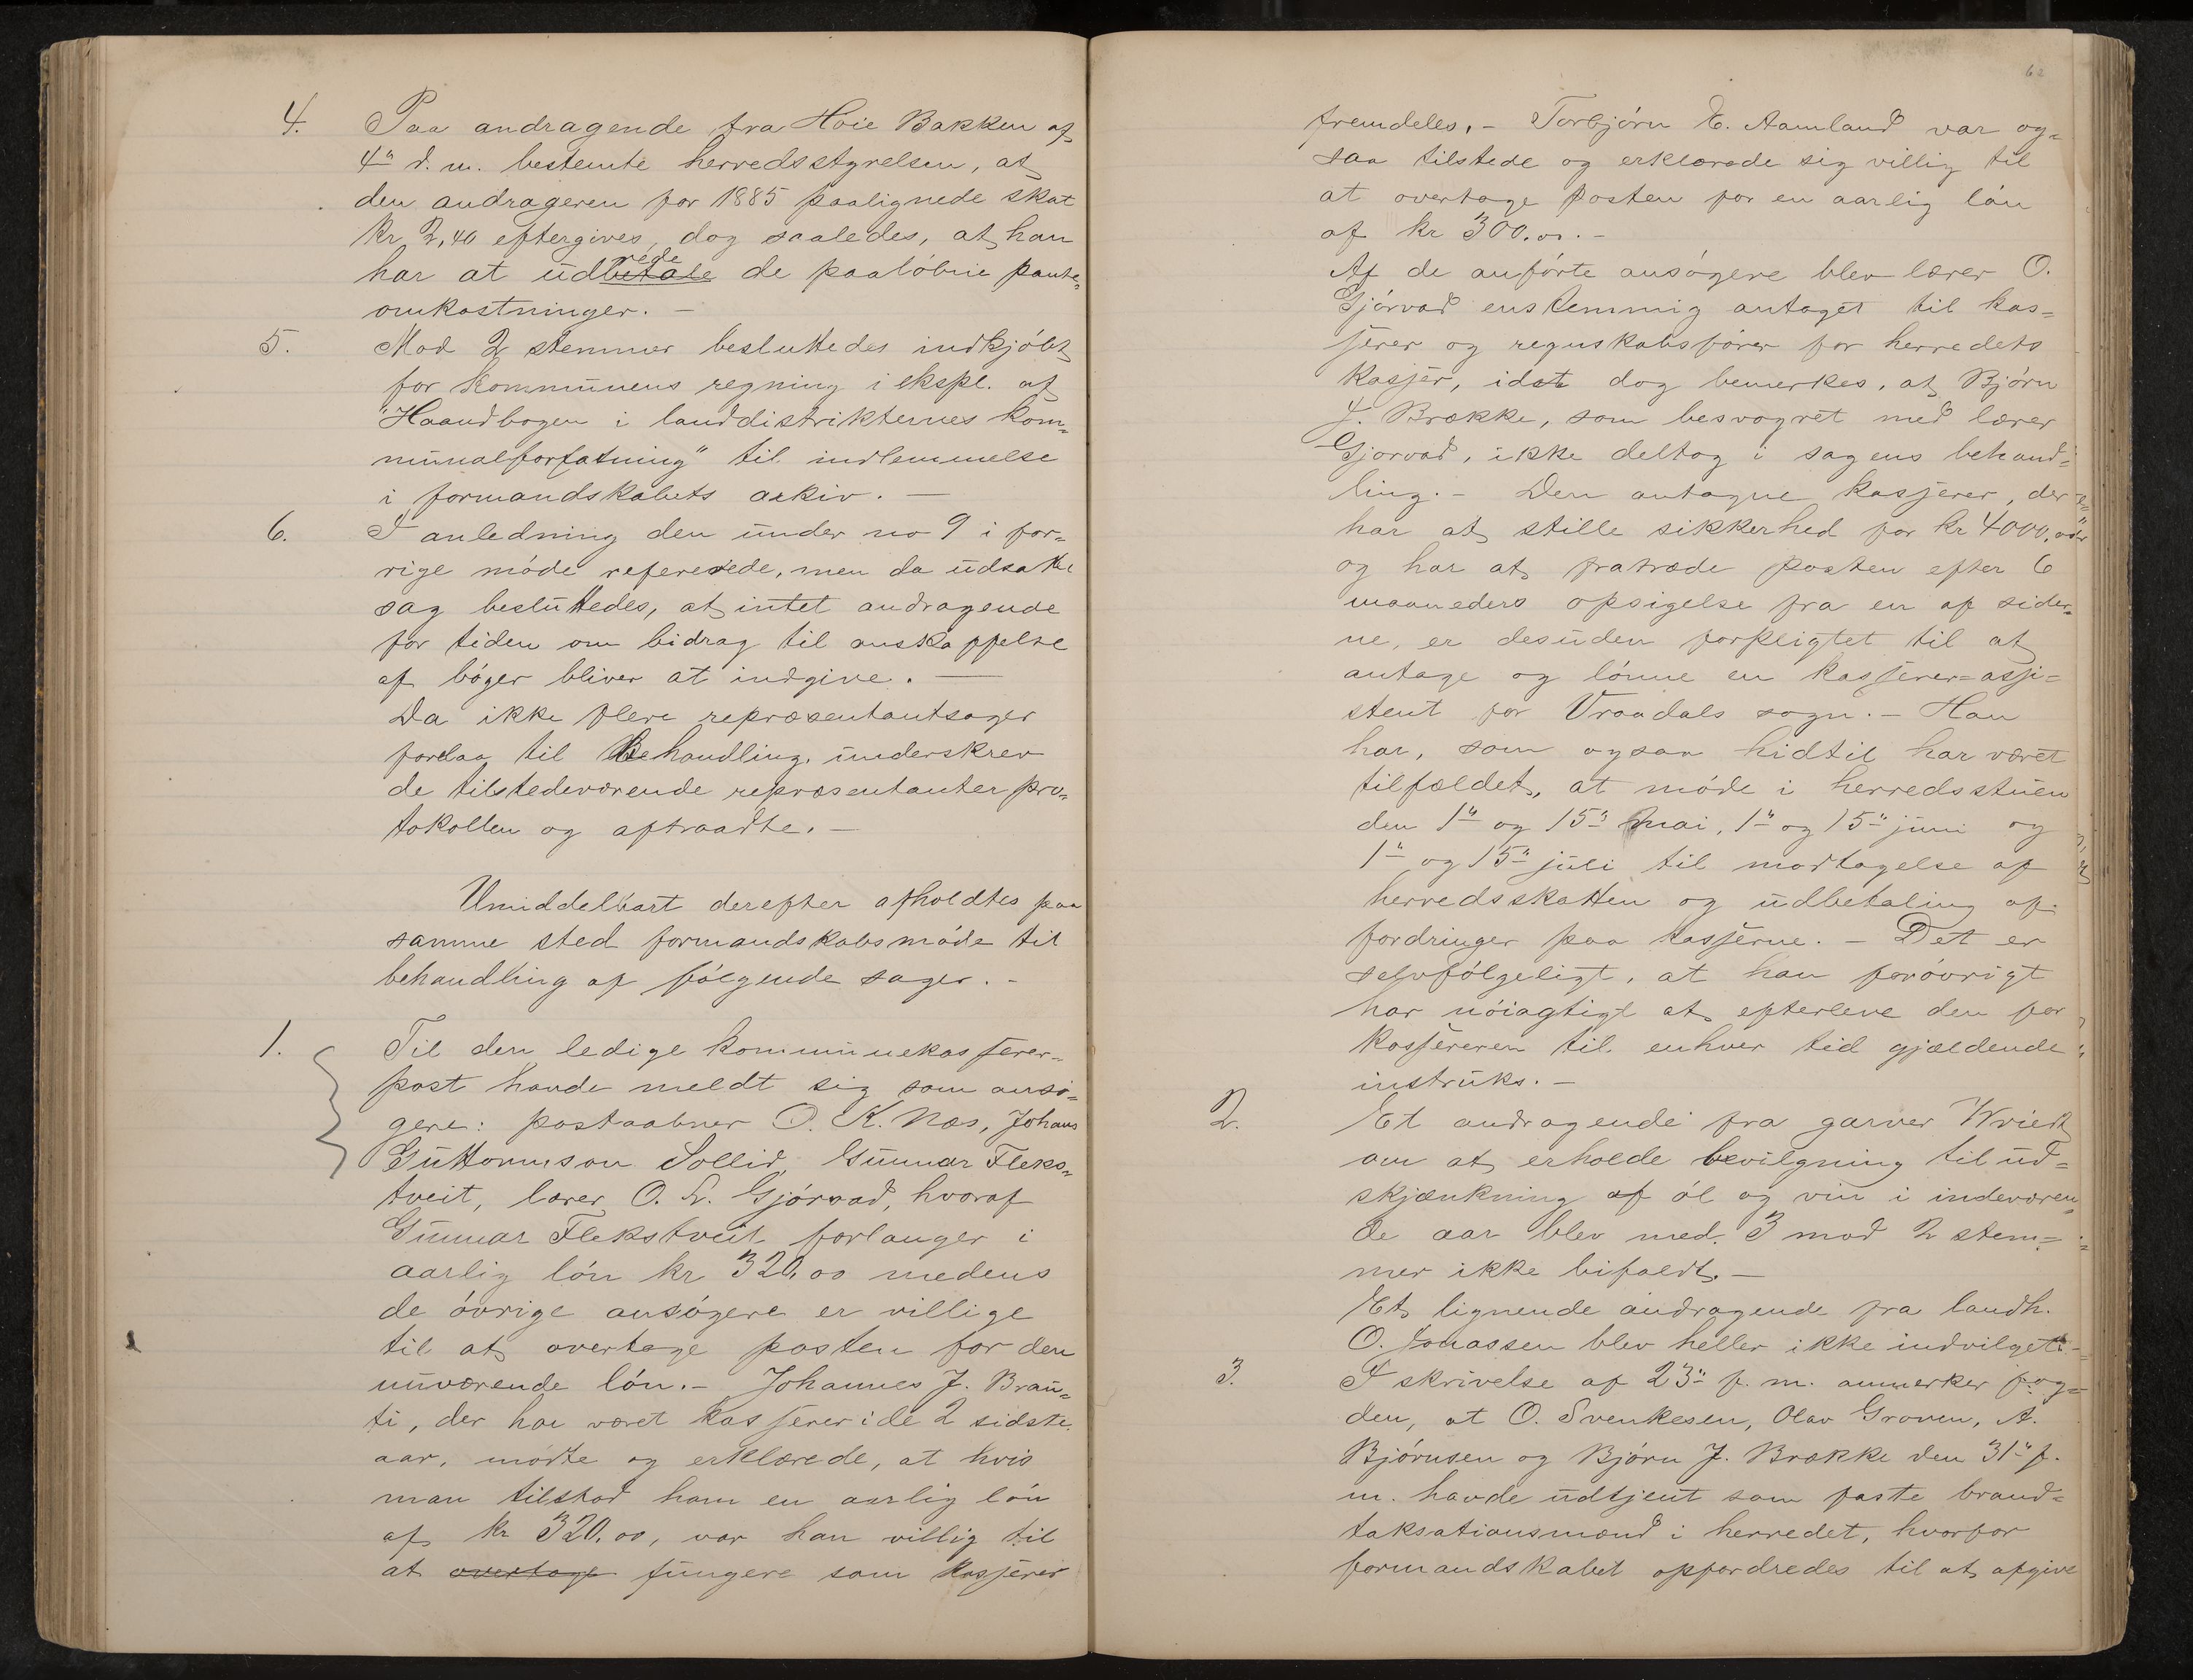 4. Paa andragende fra Hoie Bakken af
4" d. m. bestemte herredsstyrelsen, at
den andrageren for 1885 paalignede skat
kr 2,40 eftergives, dog saaledes, at han
rede
har at udbetale de paaløbne pante-
omkostninger. —
5. Mod 2 stemmer besluttedes indkjøbt
for kommunens regning i ekspl. af
"Haandbogen i landdistrikternes kom-
munalforfatning" til indlemmelse
i formandskabets arkiv. —
6. I anledning den under no 9 i for-
rige møde refererede, men da udsatte
sag besluttedes, at intet andragende
for tiden om bidrag til anskaffelse
af bøger bliver at indgive. —
Da ikke flere repræsentantsager
forelaa til Behandling, underskrev
de tilstedeværende repræsentanter pro-
tokollen og aftraadte. —
Umiddelbart derefter afholdtes paa
samme sted formandskabsmøde til
behandling af følgende sager. -
1. Til den ledige kommunekasserer-
post havde meldt sig som ansø-
gere: postaabner O. K. Næs, Johans
Guttormson Sollid, Gunnar Fleks-
tveit, lærer O. L. Gjørvad, hvoraf
Gunnar Flekstveit forlanger i
aarlig løn kr 320,00 medens
de øvrige ansøgere er villige
til at overtage posten for den
nuværende løn. - Johannes J. Brau-
ti, der har været kasserer i de 2 sidste
aar, mødte og erklærede, at hvis
man tilstod ham en aarlig løn
af kr 320.00, var han villig til
at overtage fungere som kasserer
62
fremdeles. - Torbjørn E. Aamland var og-
saa tilstede og erklærede sig villig til
at overtage posten for en aarlig løn
af kr 300.00. -
Af de anførte ansøgere blev lærer O.
Gjørvad enstemmig antaget til kas-
serer og regnskabsfører for herredets
kasser, idet dog bemerkes, at Bjørn
J. Brække, som besvogret med lærer
Gjørvad, ikke deltog i sagens behand-
ling. - Den antagne kasserer, der
har at stille sikkerhed for kr 4000,00
og har at fratræde posten efter 6
maaneders opsigelse fra en af sider-
ne, er desuden forpligtet til at
antage og lønne en kasserer-assi-
stent for Vraadals sogn. - Han
har, som ogsaa hidtil har været
tilfældet, at møde i herredsstuen
den 1" og 15" mai, 1" og 15" juni og
1" og 15" juli til modtagelse af
herredsskatten og udbetaling af
fordringer paa kasserne. - Det er
selvfølgeligt, at han forøvrigt
har nøiagtigt at efterleve den for
kassereren til enhver tid gjældende
instruks. -
2. Et andragende fra garver Wriedt
om at erholde bevilgning til ud-
skjænkning af øl og vin i indeværen-
de aar blev med 3 mod 2 stem-
mer ikke bifaldt. —
Et lignende andragende fra landh.
O. Jonassen blev heller ikke indvilget. -
3. I skrivelse af 23" f. m. anmerker fog-
den, at O. Svenkesen, Olav Groven, A.
Bjørnsen og Bjørn J. Brække den 31" f.
m. havde udtjent som faste brand-
taksationsmænd i herredet, hvorfor
formandskabet opfordredes til at afgive